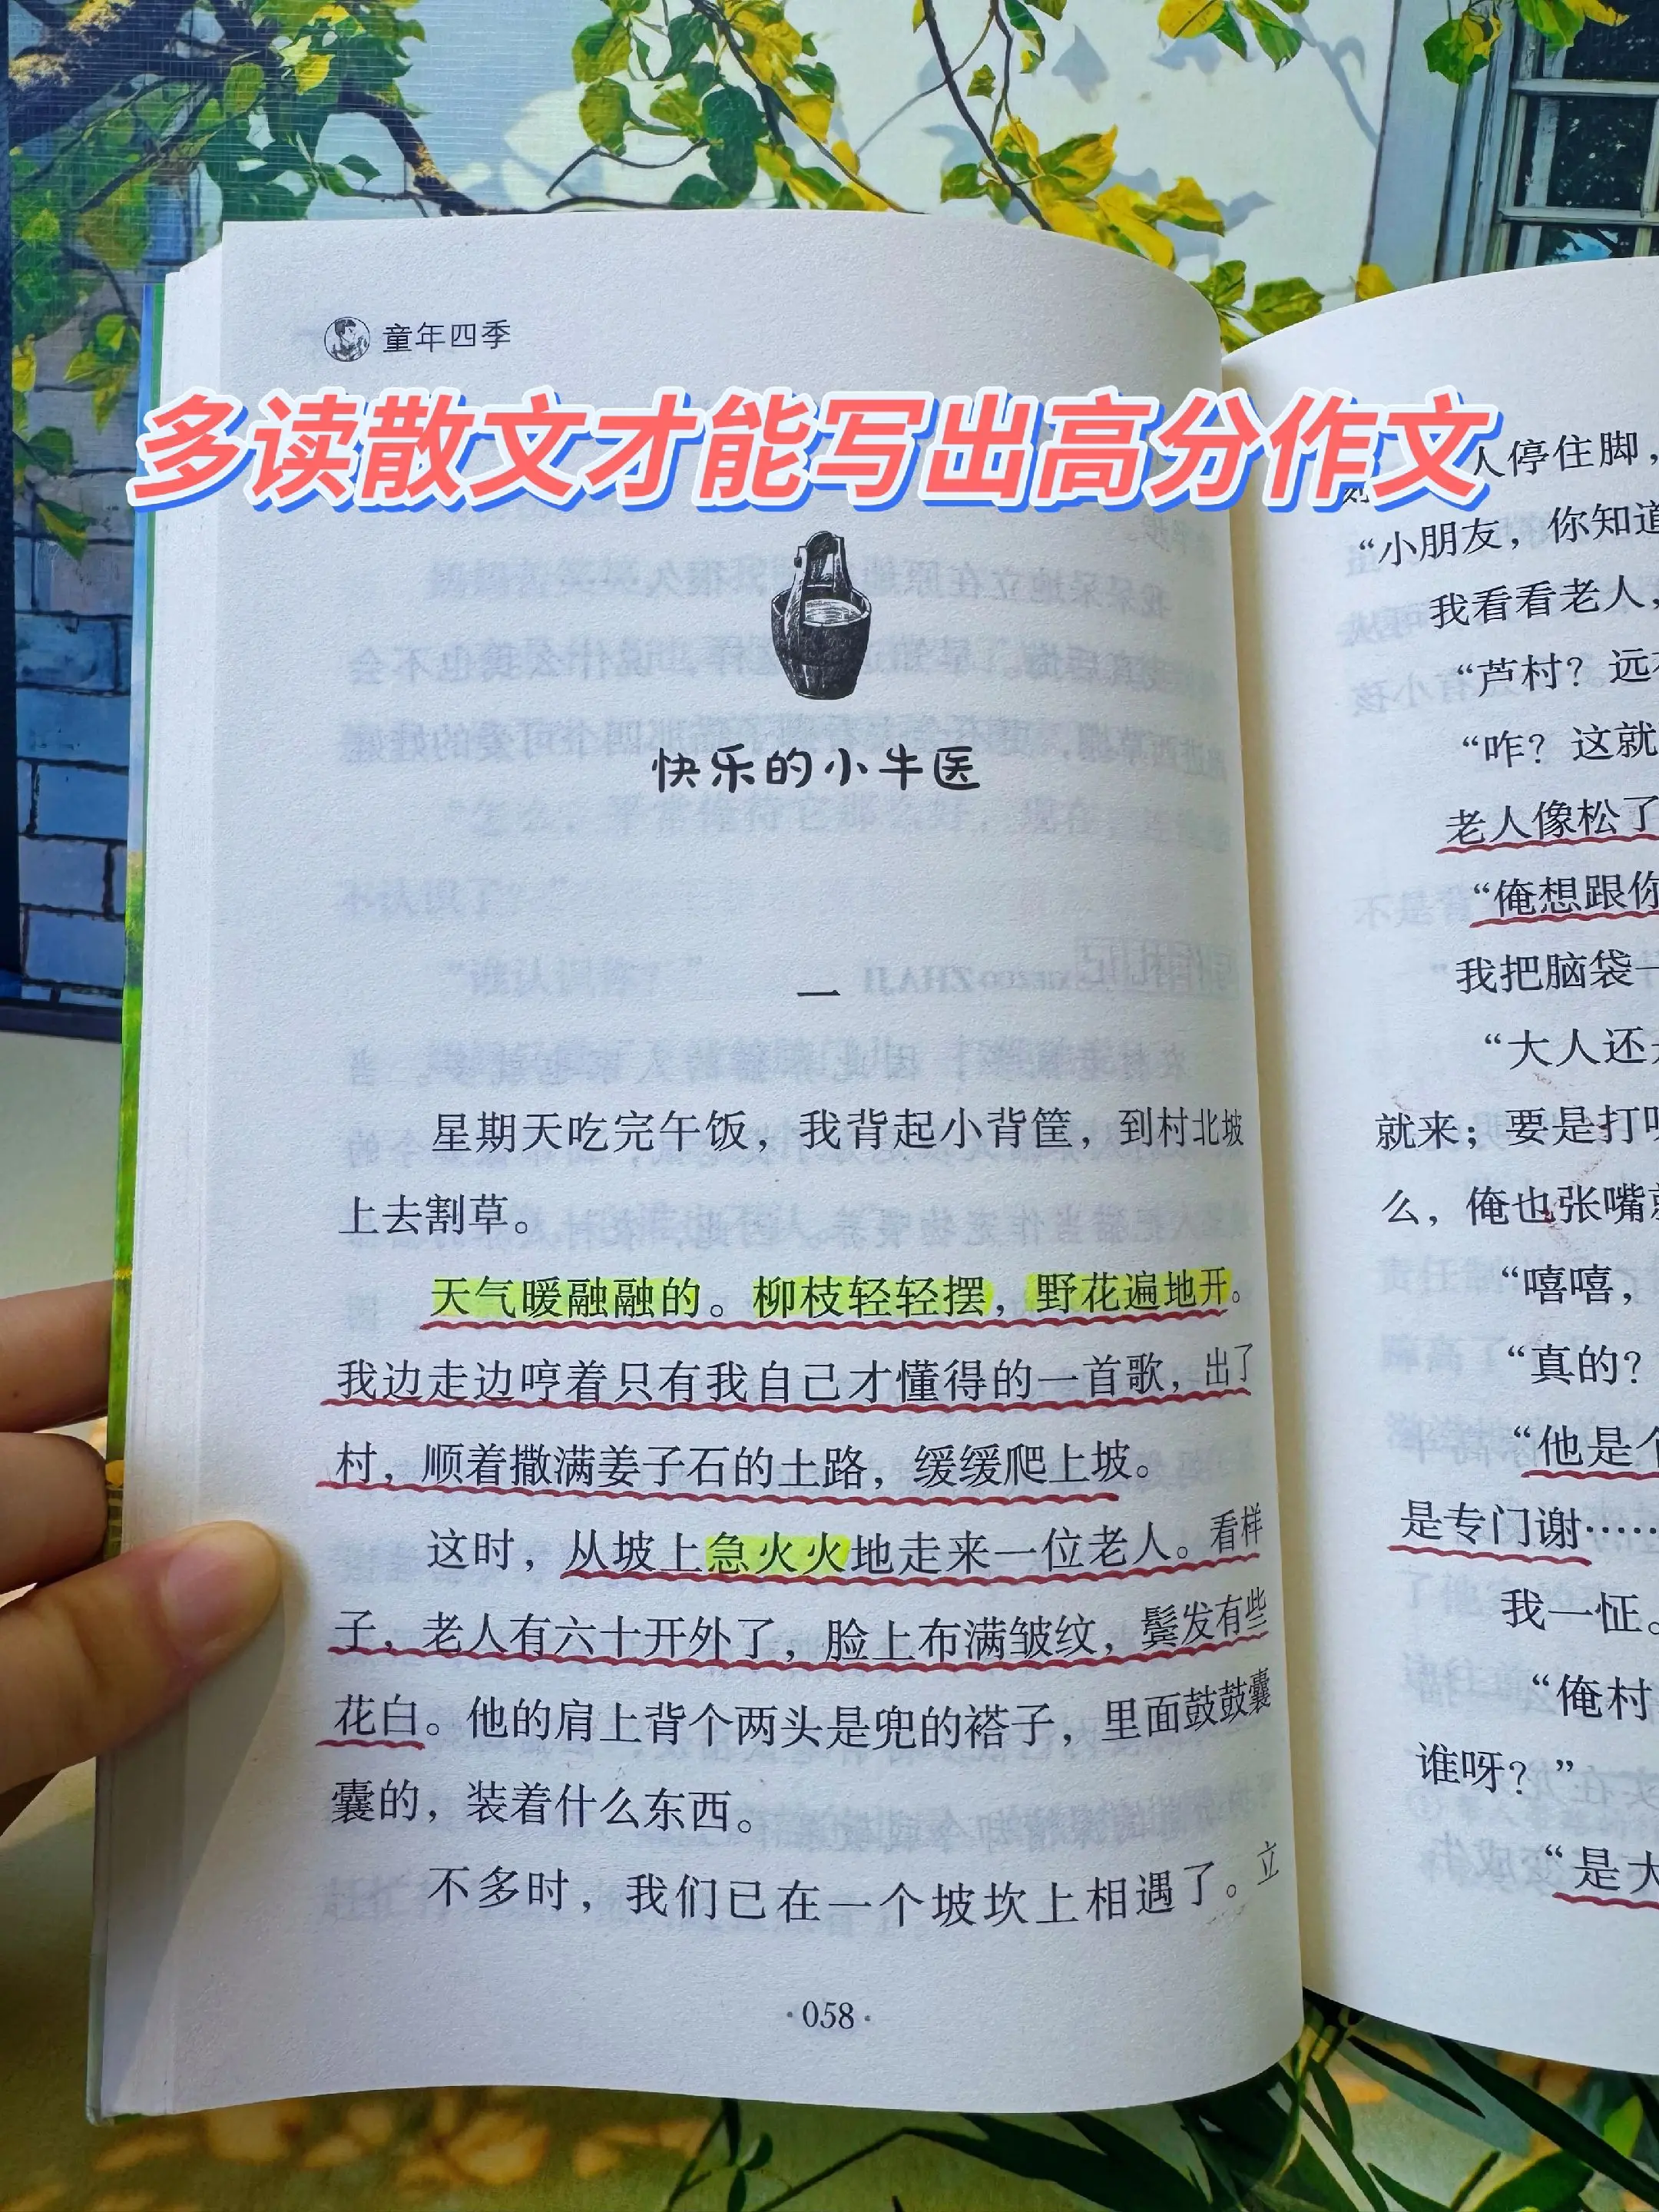 童年四季
多读散文才能写出高分作文
快乐的小牛医
一
星期天吃完午饭，我背起小背筐，到村北坡
上去割草。
天气暖融融的。柳枝轻轻摆，野花遍地开。
我边走边哼着只有我自己才懂得的一首歌，出了
村，顺着撒满姜子石的土路，缓缓爬上坡。
这时，从坡上急火火地走来一位老人。看样
子，老人有六十开外了，脸上布满皱纹，鬓发有些
花白。他的肩上背个两头是兜的褡子，里面鼓鼓囊
囊的，装着什么东西。
不多时，我们已在一个坡坎上相遇了。立
·058·
人停住脚，
“小朋友，你知道
我看看老人，
“芦村？远
“咋？这就
老人像松了
“俺想跟你
我把脑袋一
“大人还
就来；要是打
么，俺也张嘴
“嘻嘻，
“真的？
“他是个
是专门谢……
我一怔。
“俺村
谁呀？”
“是大